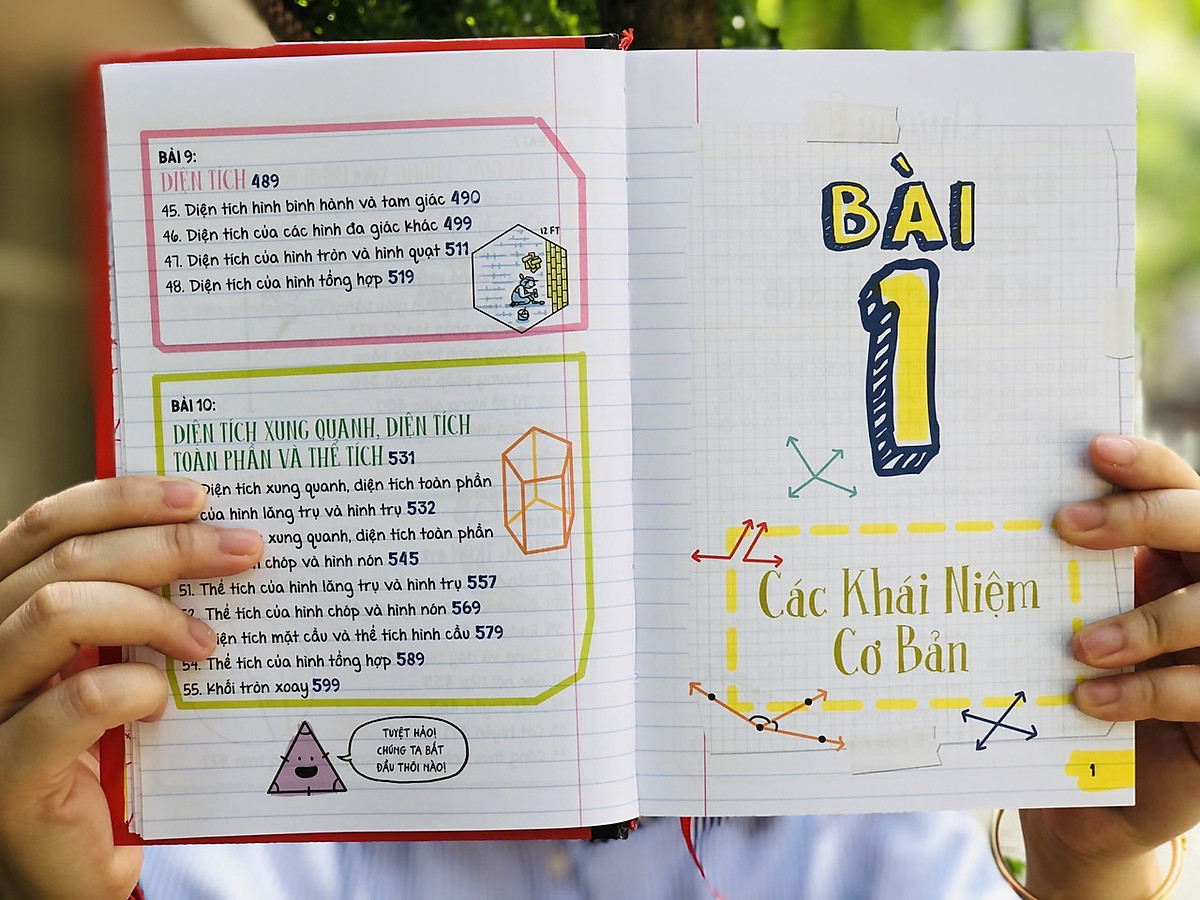 BÀI 9:
DIỆN TÍCH 489
45. Diện tích hình bình hành và tam giác 490
46. Diện tích của các hình đa giác khác 499
47. Diện tích của hình tròn và hình quạt 511
48. Diện tích của hình tổng hợp 519
12 FT
BÀI 10:
DIỆN TÍCH XUNG QUANH, DIỆN TÍCH
TOÀN PHẦN VÀ THỂ TÍCH 531
Diện tích xung quanh, diện tích toàn phần
của hình lăng trụ và hình trụ 532
xung quanh, diện tích toàn phần
chóp và hình nón 545
51. Thể tích của hình lăng trụ và hình trụ 557
Thể tích của hình chóp và hình nón 569
diện tích mặt cầu và thể tích hình cầu 579
54. Thể tích của hình tổng hợp 589
55. Khối tròn xoay 599
TUYỆT HẢO!
CHÚNG TA BẮT
ĐẦU THÔI NÀO!
BÀI
1
Các Khái Niệm
Cơ Bản
1